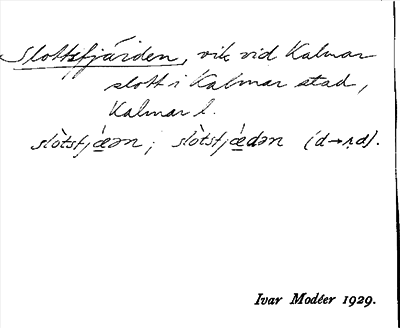 Slottsfjärden, vik vid Kalmar
slott i Kalmar stad,
Kalmar l.
slòtsfjæ̀ən ; slòtsfjæ̀dən (d→ṇd).
Ivar Modéer 1929.